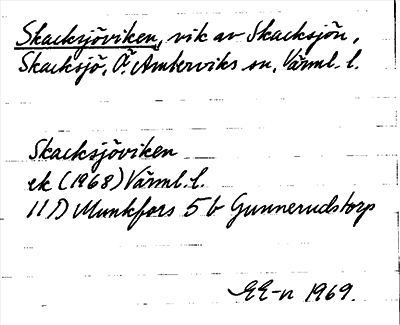 Skacksjöviken, vik av Skacksjön,
Skacksjö, Ö. Ämterviks sn, Värml. l.
Skacksjöviken
ek (1968) Värml. l.
11D Munkfors 5b Gunnerudstorp
EE-n 1969.